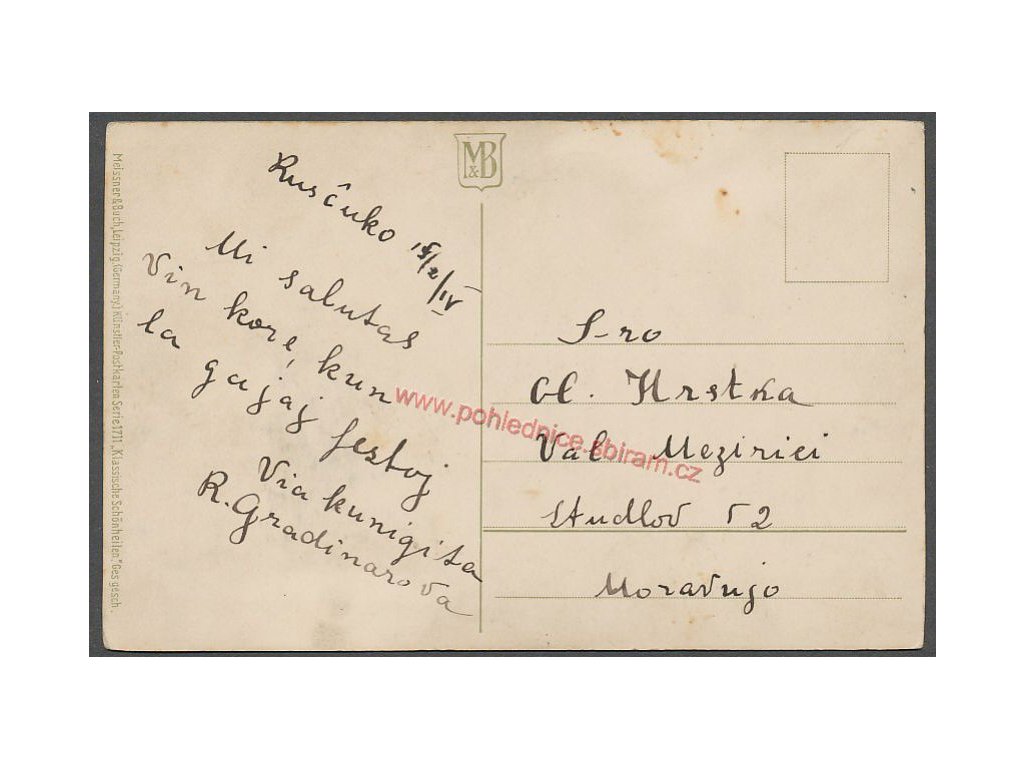 Meissner & Buch, Leipzig. (Germany.) Künstler-Postkarten Serie 1711. „Klassische Schönheiten." Ges. gesch.
M&B
Rusĉuko
Mi salutas
Vin kore, kun
la gajaj festoj
Via kunigita
R. Gradinarova
S-ro
Ol. Hrstka
Val Mezirici
Studlov 52
Moravujo
www.pohlednice.sbiram.cz